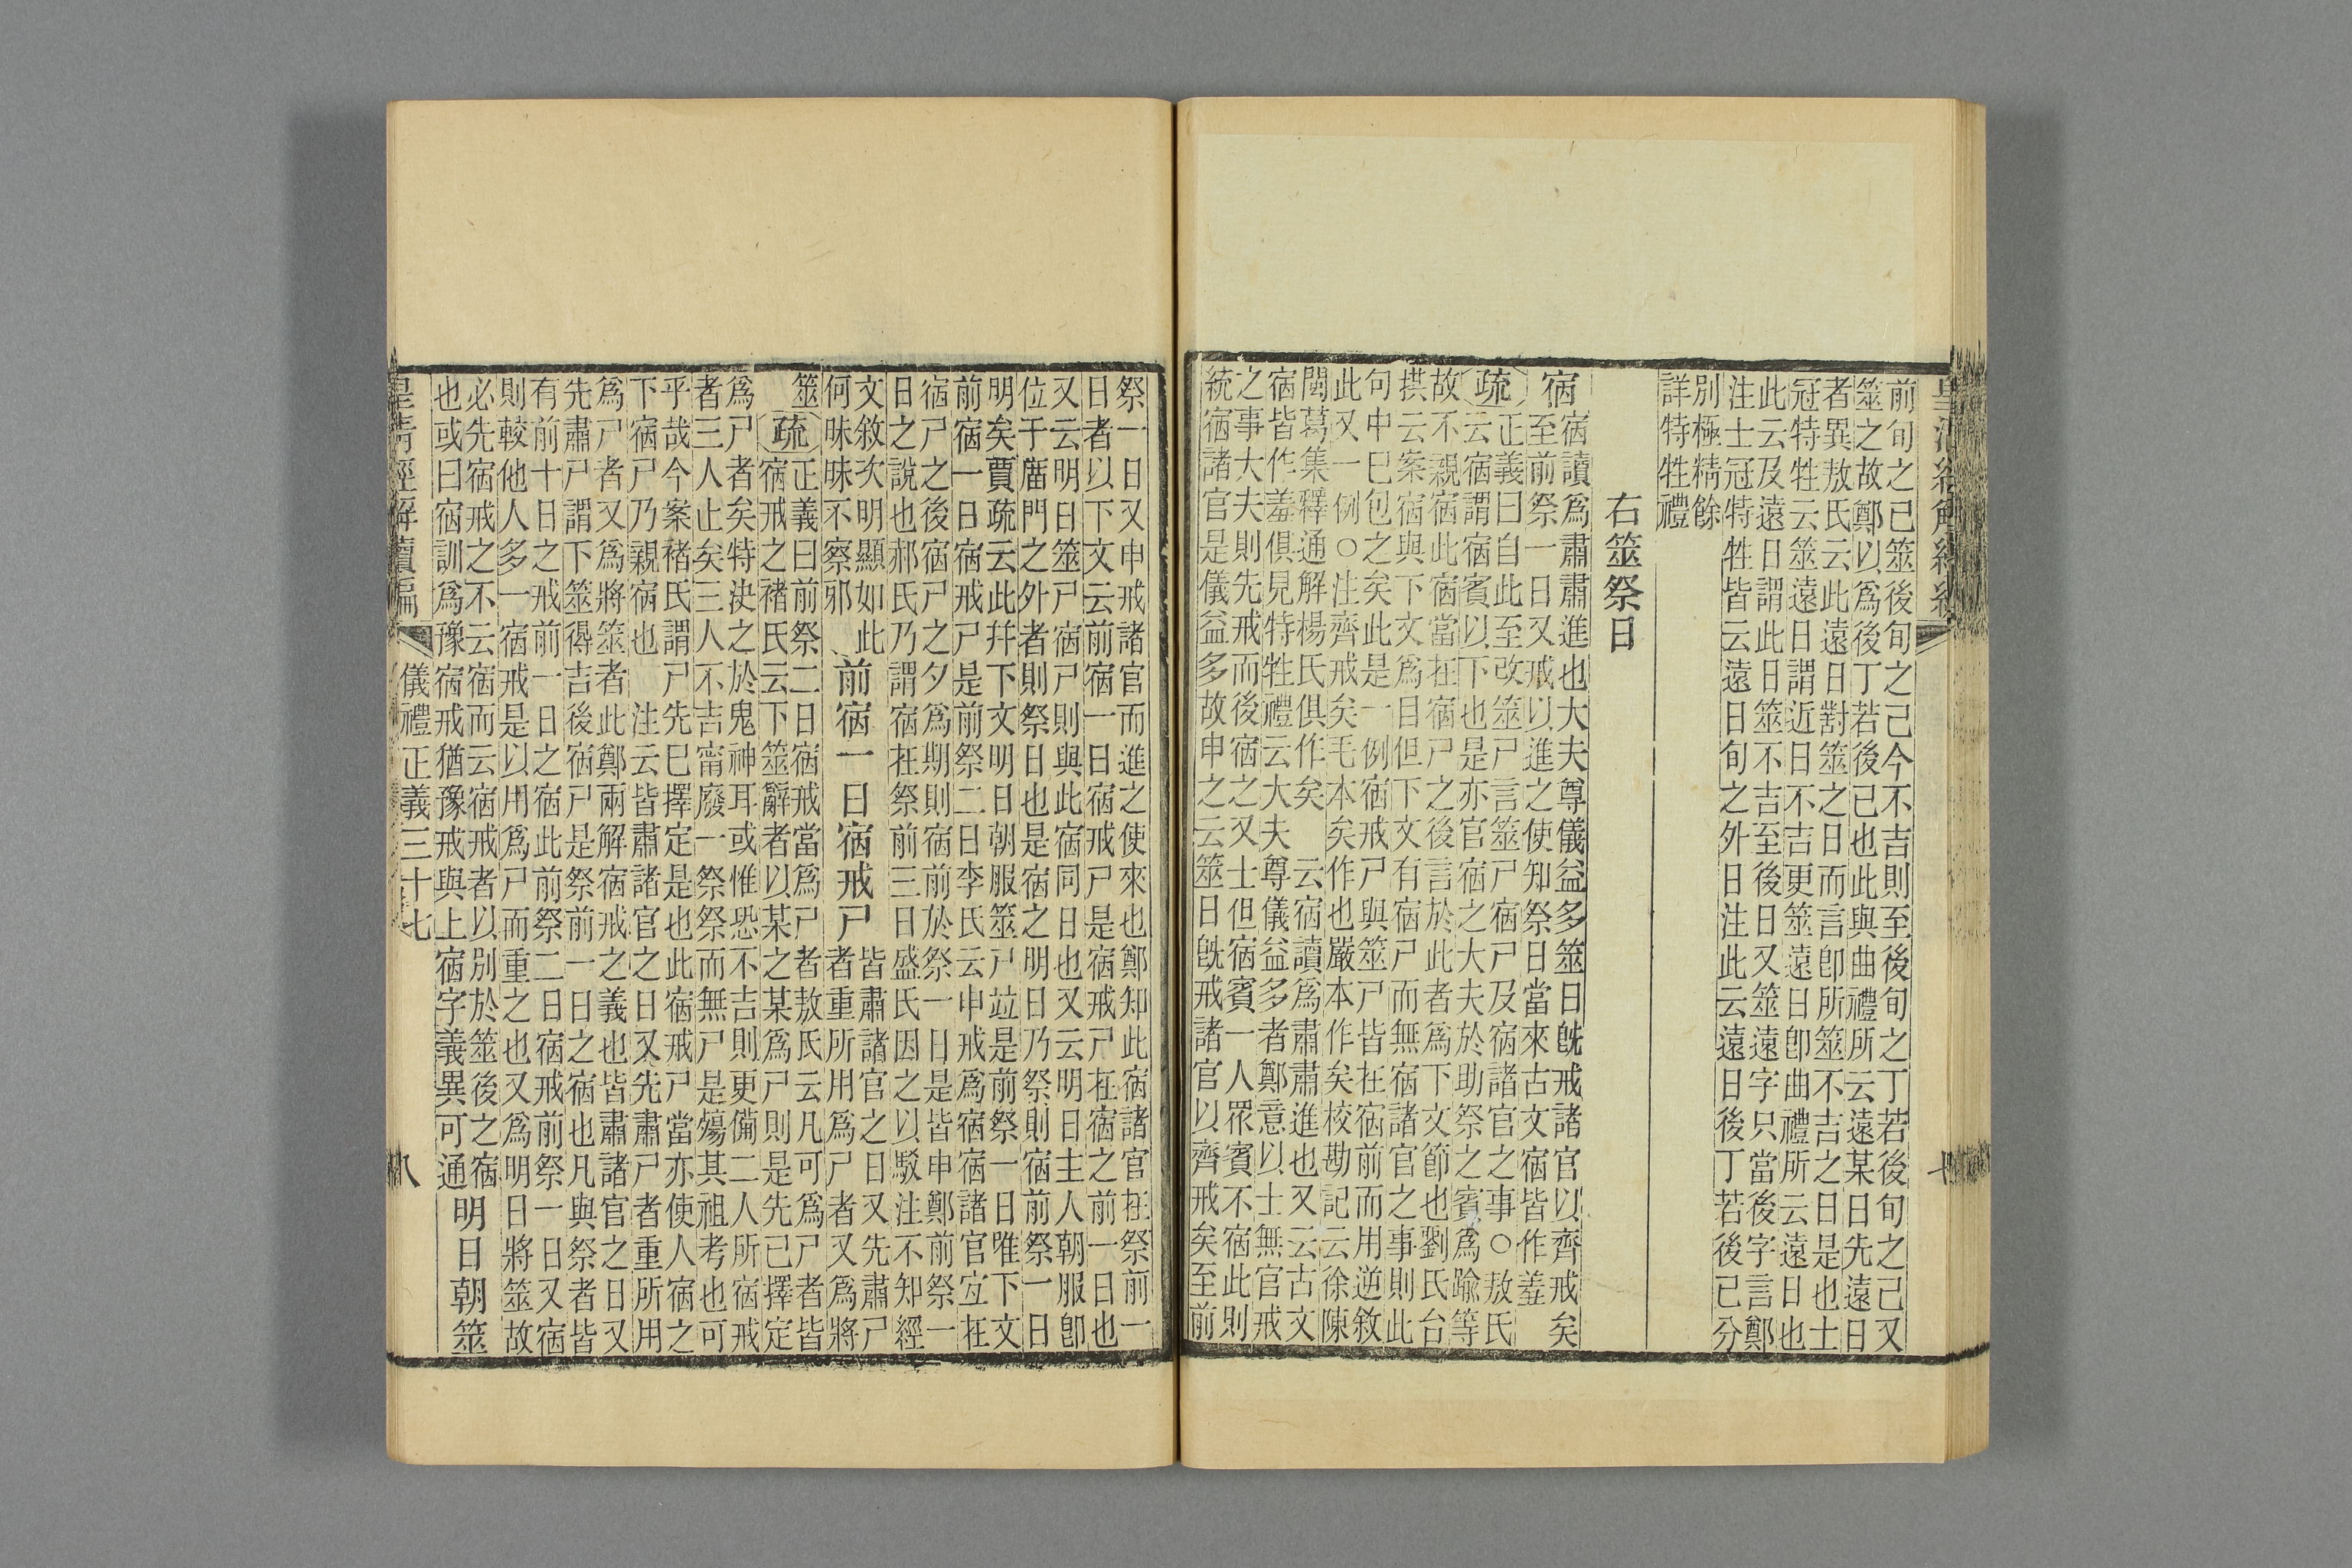 前旬之已筮後旬之己今不吉則至後旬之丁若後旬之己又
筮之故鄭以為後丁若後己也此與曲禮所云遠某日先遠日
者異敖氏云此遠日對筮之日而言卽所筮不吉之日是也士
冠特牲云筮遠日謂近日不吉更筮遠日卽曲禮所云遠日也
此云及遠日謂此日筮不吉至後日又筮遠字只當後字言鄭
注士冠特牲皆云遠日旬之外日注此云遠日後丁若後己分
別極精餘
詳特牲禮
右筮祭日
宿
宿讀為肅肅進也大夫尊儀益多筮日旣戒諸官以齊戒矣
至前祭一日又戒以進之使知祭日當來古文宿皆作羞
疏
正義曰自此至改筮尸言筮尸宿尸及宿諸官之事○敖氏
云宿謂宿賓以下也是亦官宿之大夫於助祭之賓為踰等
故不親宿此宿當在宿尸之後言於此者為下文節也劉氏台
拱云案宿與下文為目但下文有宿尸而無宿諸官之事則此
句申巳包之矣此是一例宿戒尸與筮尸皆在宿前而用逆敘
此又一例○注齊戒矣毛本矣作也嚴本作矣校勘記云徐陳
閩葛集釋通解楊氏俱作矣 云宿讀為肅肅進也又云古文
宿皆作羞俱見特牲禮云大夫尊儀益多者鄭意以士無官戒
之事大夫則先戒而後宿之又士但宿賓一人眾賓不宿此則
統宿諸官是儀益多故申之云筮日旣戒諸官以齊戒矣至前
祭一日又申戒諸官而進之使來也鄭知此宿諸官在祭前一
日者以下文云前宿一日宿戒尸是宿戒尸在宿之前一日也
又云明日筮尸宿尸則與此宿同日也又云明日主人朝服卽
位于廟門之外者則祭日也是宿之明日乃祭則宿前祭一日
明矣賈疏云此幷下文明日朝服筮尸竝是前祭一日唯下文
前宿一日宿戒尸是前祭二日李氏云申戒為宿宿諸官宜在
宿尸之後宿尸之夕為期則宿前於祭一日是皆申鄭前祭一
日之說也郝氏乃謂宿在祭前三日盛氏因之以駁注不知經
文敘次明顯如此
何昧昧不察邪
前宿一日宿戒尸
皆肅諸官之日又先肅尸
者重所用為尸者又為將
筮
疏
正義曰前祭二日宿戒當為尸者敖氏云凡可為尸者皆
宿戒之褚氏云下筮辭者以某之某為尸則是先已擇定
為尸者矣特決之於鬼神耳或惟恐不吉則更備二人所宿戒
者三人止矣三人不吉甯廢一祭祭而無尸是殤其祖考也可
乎哉今案褚氏謂尸先巳擇定是也此宿戒尸當亦使人宿之
下宿尸乃親宿也 注云皆肅諸官之日又先肅尸者重所用
為尸者又為將筮者此鄭兩解宿戒之義也皆肅諸官之日又
先肅尸謂下筮得吉後宿尸是祭前一日之宿也凡與祭者皆
有前十日之戒前一日之宿此前祭二日宿戒前祭一日又宿
則較他人多一宿戒是以用為尸而重之也又為明日將筮故
必先宿戒之不云宿而云宿戒者以別於筮後之宿
也或曰宿訓為豫宿戒猶豫戒與上宿字義異可通
明日朝筮
儀禮正義三十七
八